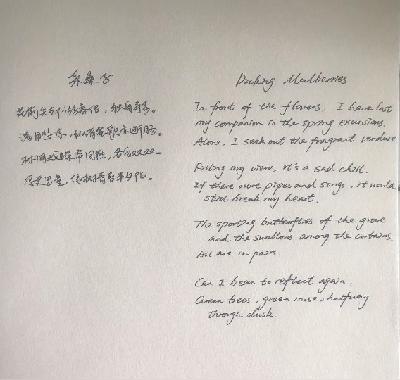 采桑子
花前失却游春侣，独自寻芳。
满目悲凉，纵有笙歌亦断肠。
林间戏蝶帘间燕，各自双双。
忍更思量，绿树青苔半夕阳。
Picking Mulberries
In front of the flowers, I have lost
my companion in the spring excursions.
Alone, I seek out the fragrant verdure
Filling my view, it's a sad chill.
If there were pipes and songs, it would
still break my heart.
The sporting butterflies of the grove
and the swallows among the curtains
All are in pairs
Can I bear to reflect again.
Green trees, green moss, halfway
through dusk.